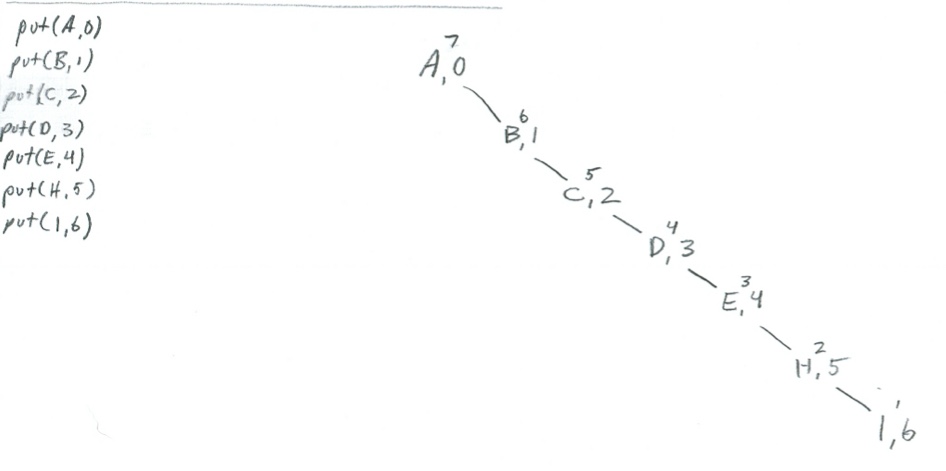 put(A,0)
put(B,1)
put(C,2)
put(D,3)
put(E,4)
put(H,5)
put(I,6)
7
A,0
6
B,1
5
C,2
4
D,3
3
E,4
2
H,5
1
I,6